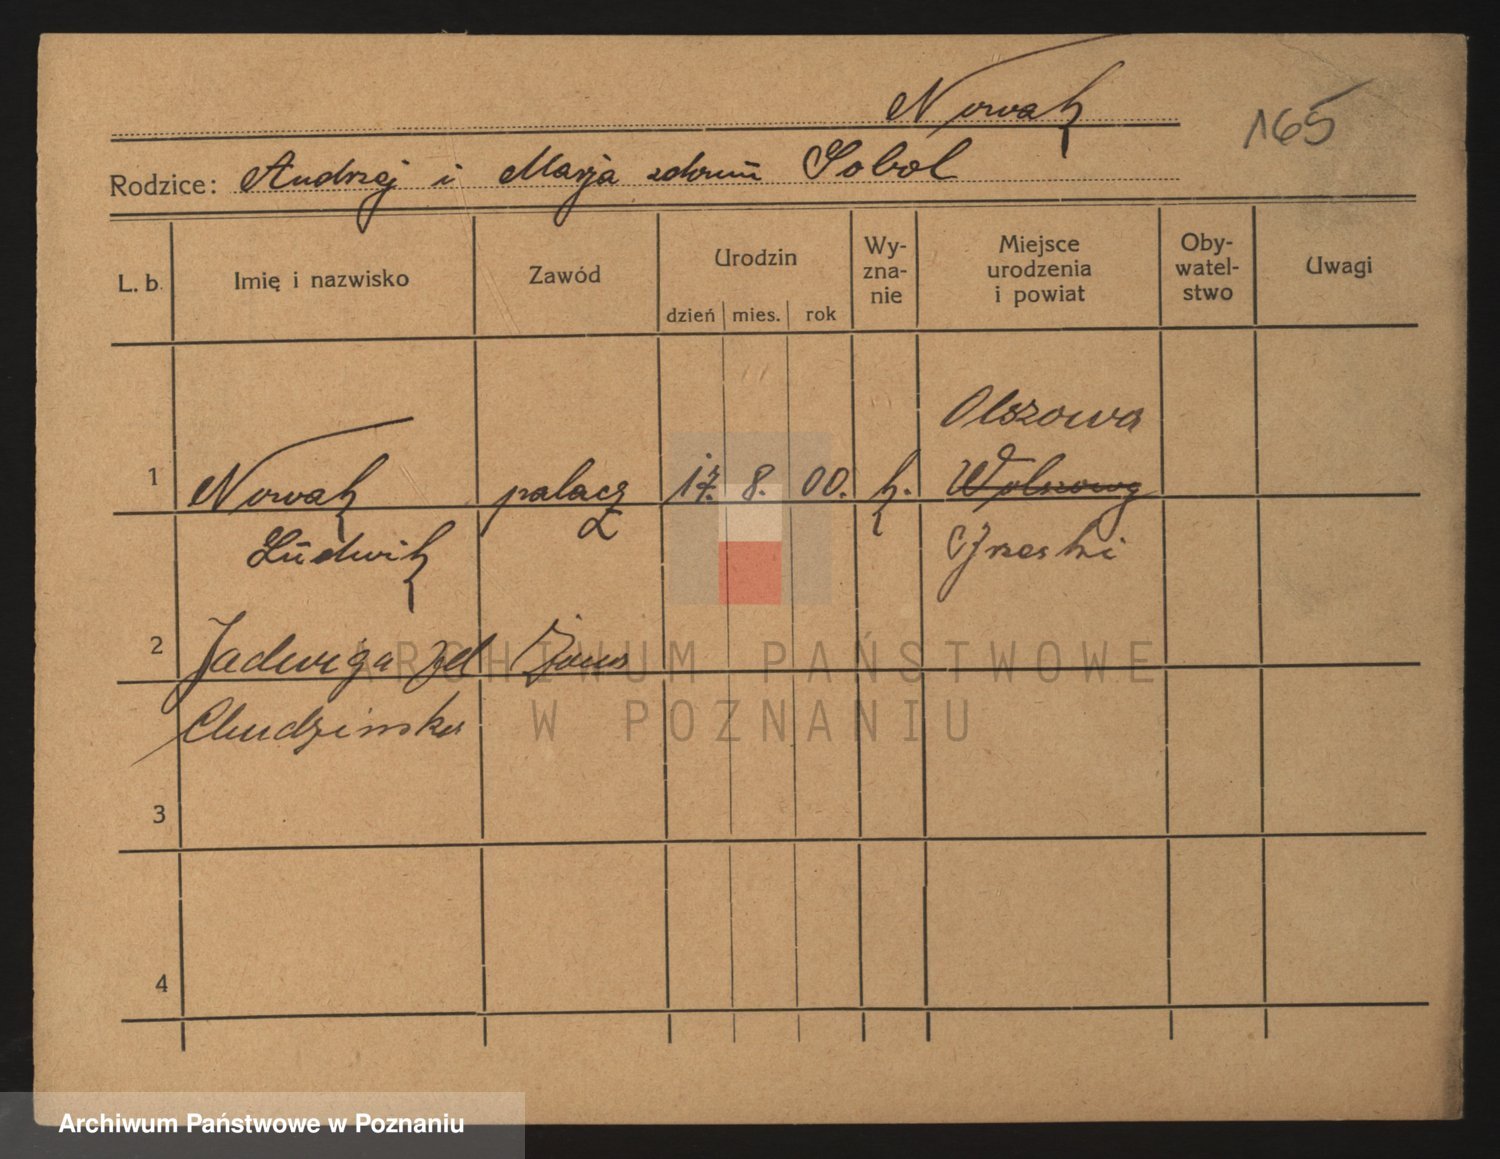 Nowak
165
Rodzice: Andrzej i Marja zdomu Sobol
L. b. Imię i nazwisko Zawód Urodzin Wy-zna-nie Miejsce urodzenia i powiat Oby-watel-stwo Uwagi
dzień mies. rok
Olszowa
1 Nowak palacz 17. 8. 00. k.
Ludwik
2 Jadwiga
Chudzinska
3
4
ARCHIWUM PAŃSTWOWE
W POZNANIU
Archiwum Państwowe w Poznaniu